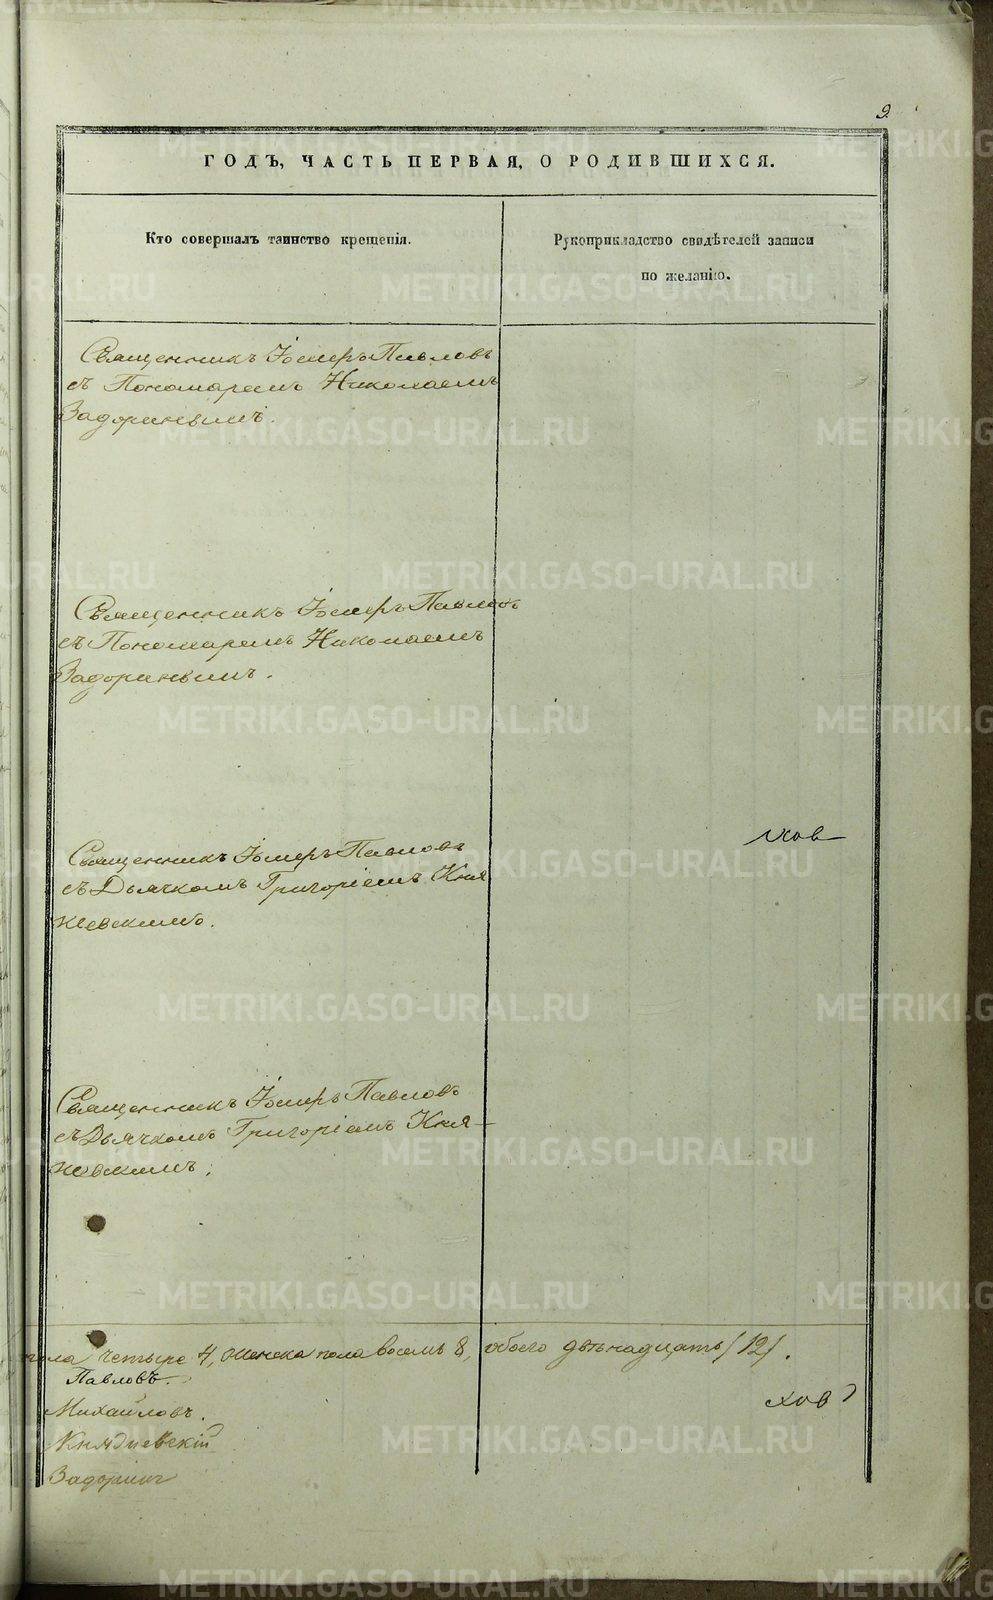 9.
ГОДЪ, ЧАСТЬ ПЕРВАЯ, О РОДИВШИХСЯ.
Кто совершалъ таинство крещенія.
Рукоприкладство свидѣтелей записи
по желанію.
Священникъ Іосифъ Павловъ
съ Пономаремъ Николаемъ
Задоринымъ.
Священникъ Іосифъ Павловъ
съ Пономаремъ Николаемъ
Задоринымъ.
Священникъ Іосифъ Павловъ
съ Дьячкомъ Григоріемъ Кня
жевскимъ.
Священникъ Іосифъ Павловъ
съ Дьячкомъ Григоріемъ Кня-
жевскимъ.
пола четыре 4, женска пола восемь 8, обоего двѣнадцать /12/.
Павловъ.
Михайловъ.
Задоринъ
METRIKI.GASO-URAL.RU